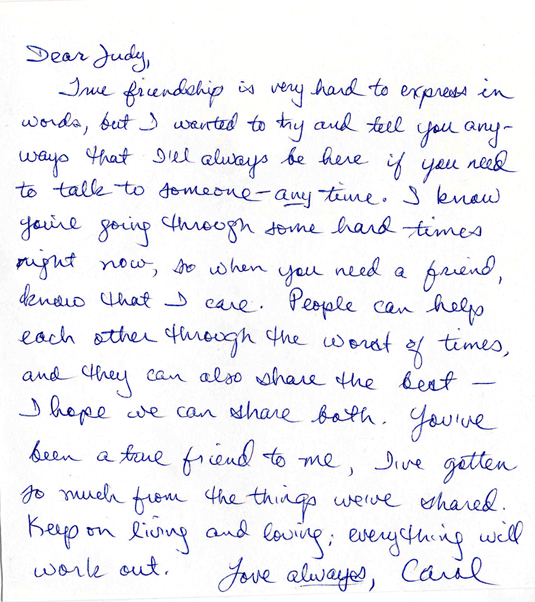 Dear Judy,
True friendship is very hard to express in
words, but I wanted to try and tell you any-
ways that I'll always be here if you need
to talk to someone – any time. I know
you're going through some hard times
right now, so when you need a friend,
know that I care. People can help
each other through the worst of times,
and they can also share the best —
I hope we can share both. You've
been a true friend to me, I've gotten
so much from the things we've shared.
Keep on living and loving; everything will
work out. Love always, Carol